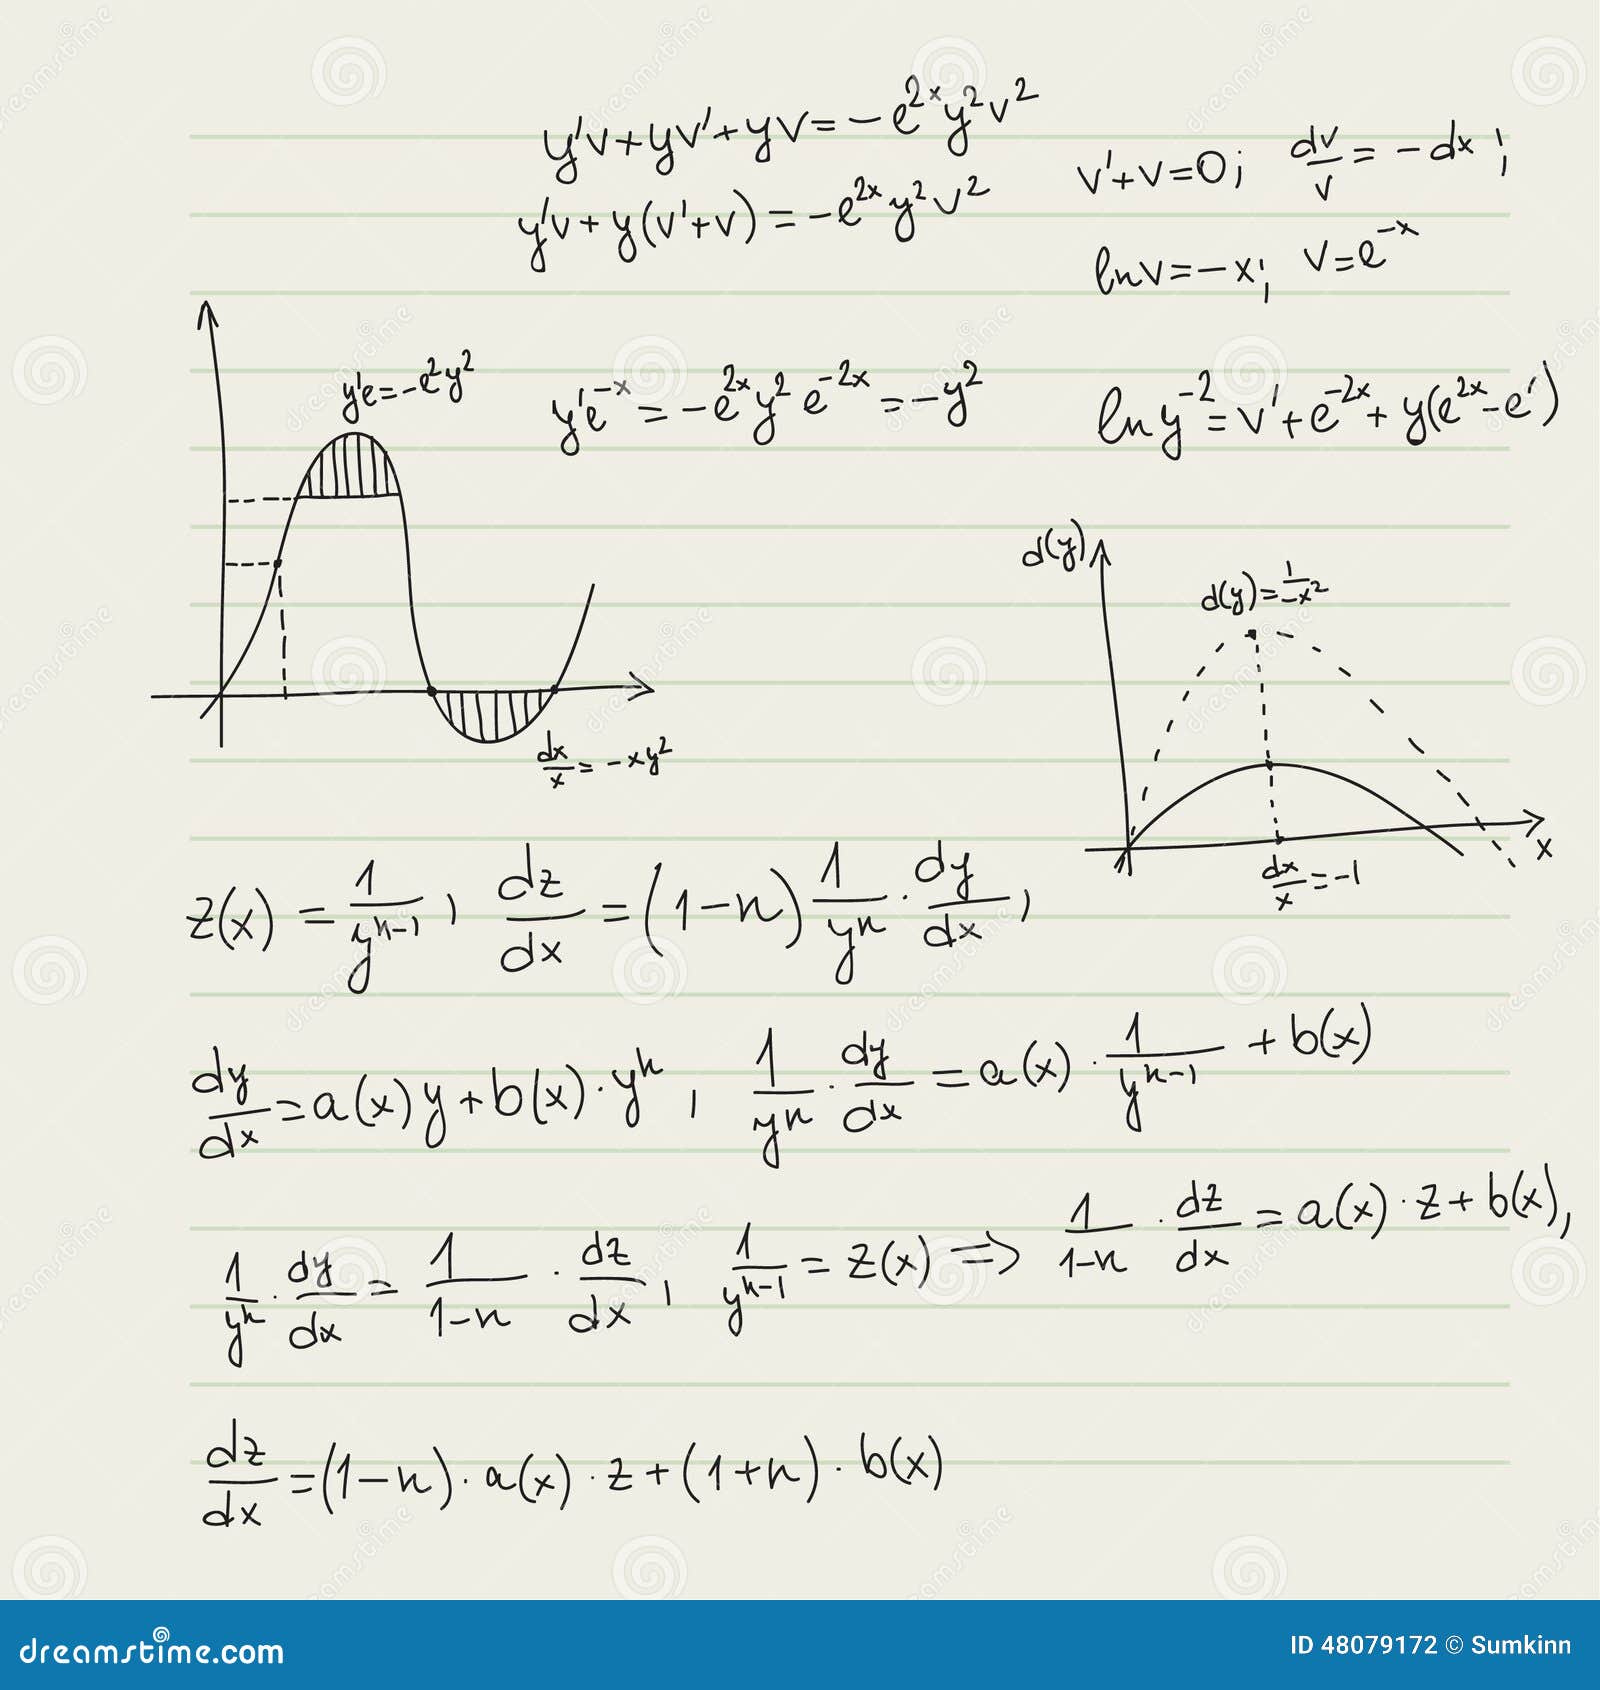 y'v+yv'+yv=-e^2x y^2 v^2
v'+v=0; dv/v = -dx;
y'v+y(v'+v)=-e^2x y^2 v^2
lnv=-x; v=e^-x
y'e=-e^2 y^2
y'e^-x = -e^2x y^2 e^-2x = -y^2
ln y^-2 = v'+e^-2x + y(e^2x-e')
d(y)
d(y)=1/-x^2
dx/x = -xy^2
x
dx/x = -1
z(x) = 1/y^n-1, dz/dx = (1-n) 1/y^n · dy/dx,
dy/dx = a(x)y+b(x)·y^n, 1/y^n · dy/dx = a(x) · 1/y^n-1 + b(x)
1/y^n · dy/dx = 1/1-n · dz/dx, 1/y^n-1 = z(x) => 1/1-n · dz/dx = a(x)·z+b(x),
dz/dx = (1-n)·a(x)·z+(1+n)·b(x)
dreamstime.com
ID 48079172 © Sumkinn